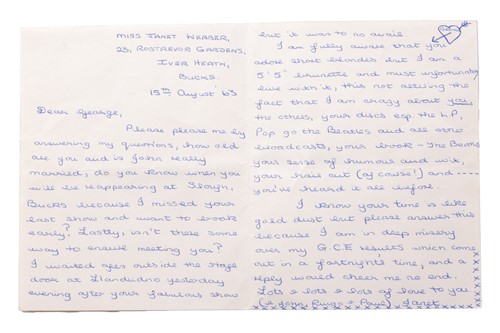 MISS JANET WEBBER,
23, ROSTREVOR GARDENS,
IVER HEATH,
BUCKS.
15th August '63
Dear George,
Please please me by
answering my questions, how old
are you and is John really
married, do you know when you
will be reappearing at Slough,
Bucks because I missed your
last show and want to book
early? Lastly, isn't there some
way to ensure meeting you?
I waited ages outside the stage
door at Llandudno yesterday
evening after your fabulous show
but it was to no avail.
I am fully aware that you
adore short blondes but I am a
5' 5" brunette and must unfortunately
live with it, this not altering the
fact that I am crazy about you,
the others, your discs esp. the L.P,
Pop go the Beatles and all other
broadcasts, your book - The Beatles
your sense of humour and wit,
your hair cut (of cause!) and ----
you've heard it all before.
I know your time is like
gold dust but please answer this
because I am in deep misery
over my G.C.E results which come
out in a fortnight's time, and a
reply would cheer me no end.
Lots & lots & lots of love to you
(& John, Ringo & Paul) Janet